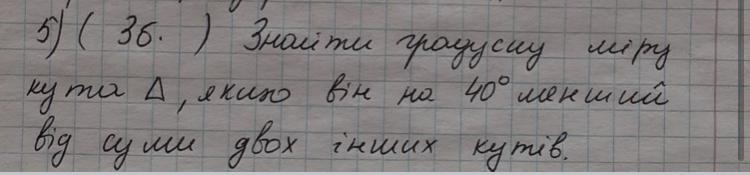 5) ( 3б. ) Знайти градусну міру
кута Δ, якщо він на 40° менший
від суми двох інших кутів.